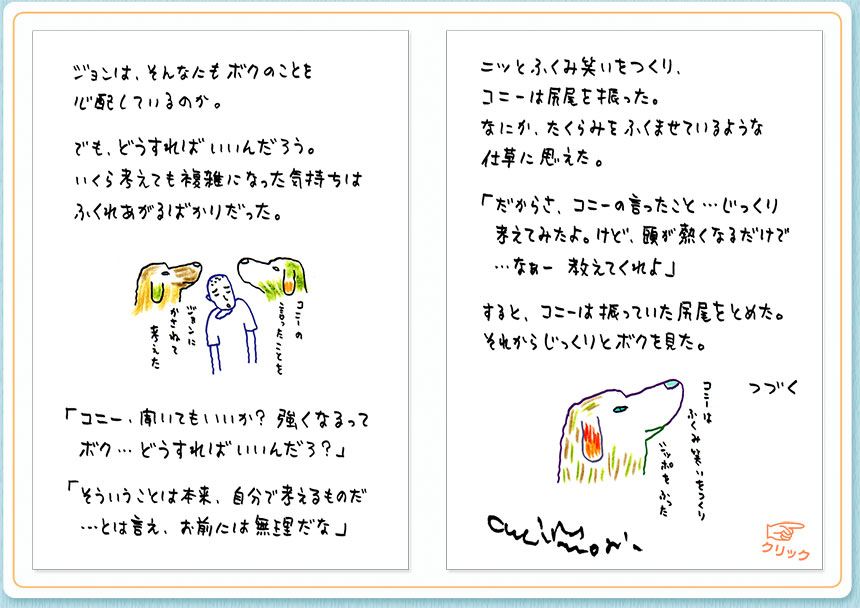 ジョンは、そんなにもボクのことを
心配しているのか。
でも、どうすればいいんだろう。
いくら考えても複雑になった気持ちは
ふくれあがるばかりだった。
コニーの
言ったことを
ジョンに
かさねて
考えた
「コニー、聞いてもいいか？強くなるって
ボク…どうすればいいんだろ？」
「そういうことは本来、自分で考えるものだ
…とは言え、お前には無理だな」
ニッとふくみ笑いをつくり、
コニーは尻尾を振った。
なにか、たくらみをふくませているような
仕草に思えた。
「だからさ、コニーの言ったこと…じっくり
考えてみたよ。けど、頭が熱くなるだけで
…なぁー 教えてくれよ」
すると、コニーは振っていた尻尾をとめた。
それからじっくりとボクを見た。
つづく
コニーは
ふくみ笑いをつくり
シッポをふった
クリック